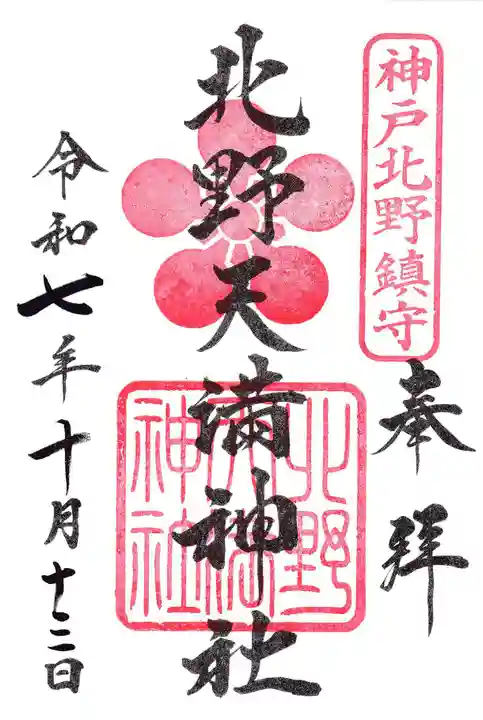 神戸北野鎮守
奉拝
北野天満神社
北野
天満
神社
令和七年十月十三日